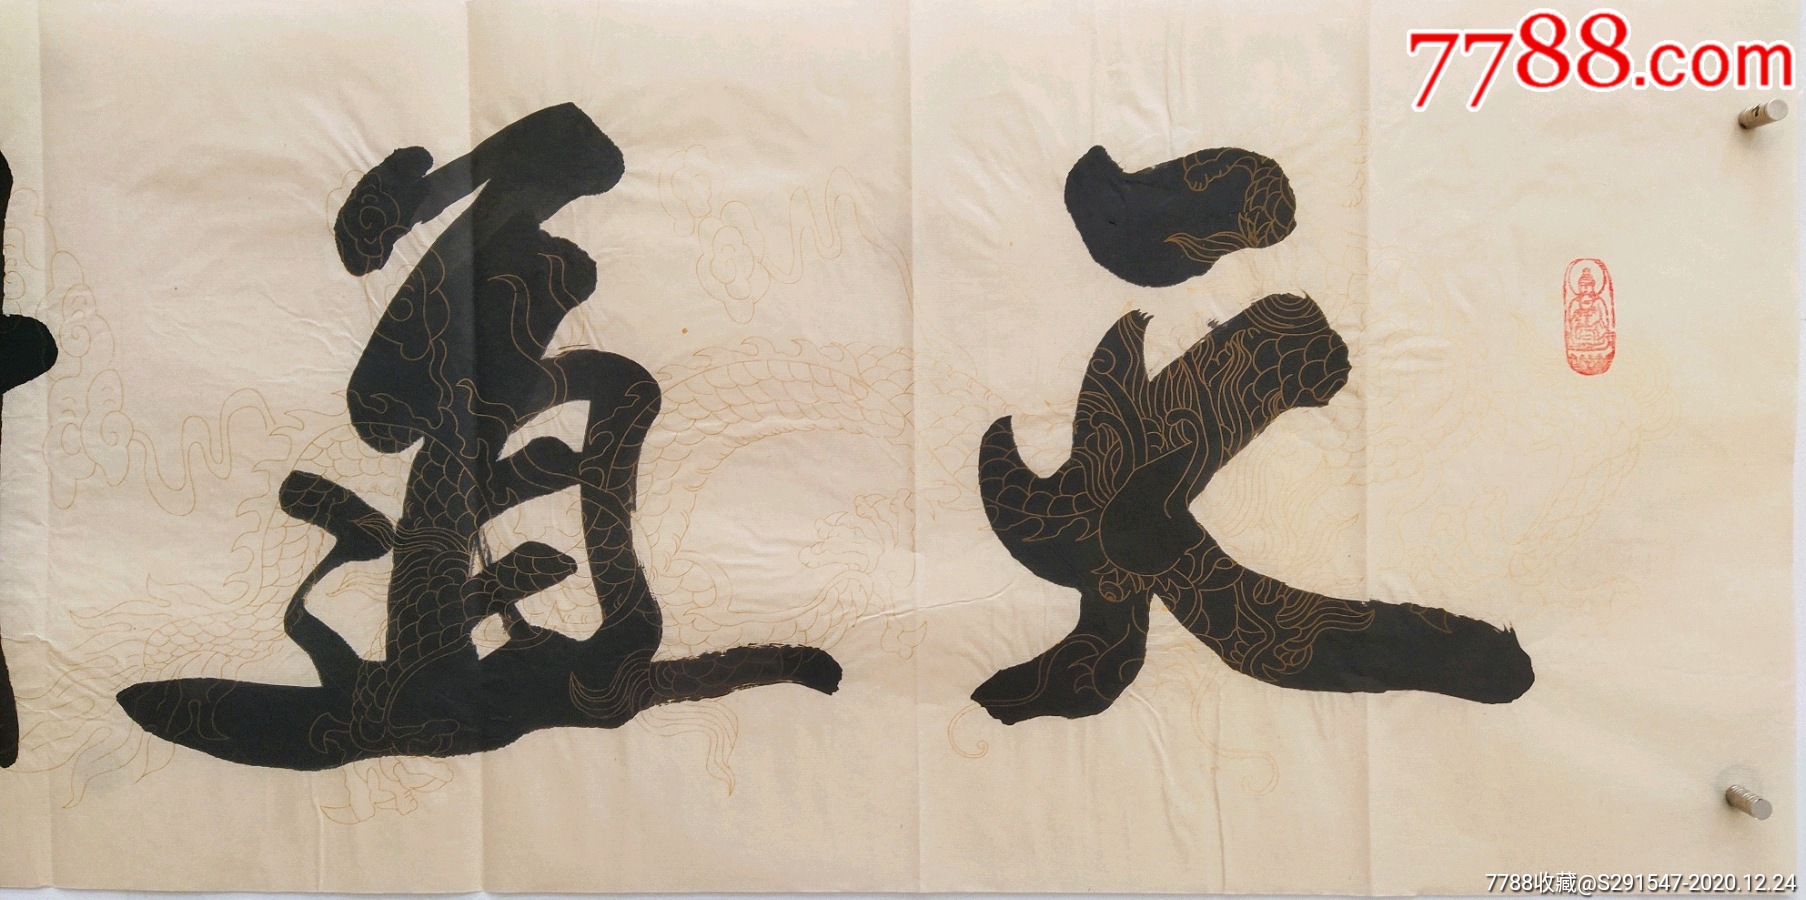 7788.com
天道
7788收藏@S291547-2020.12.24